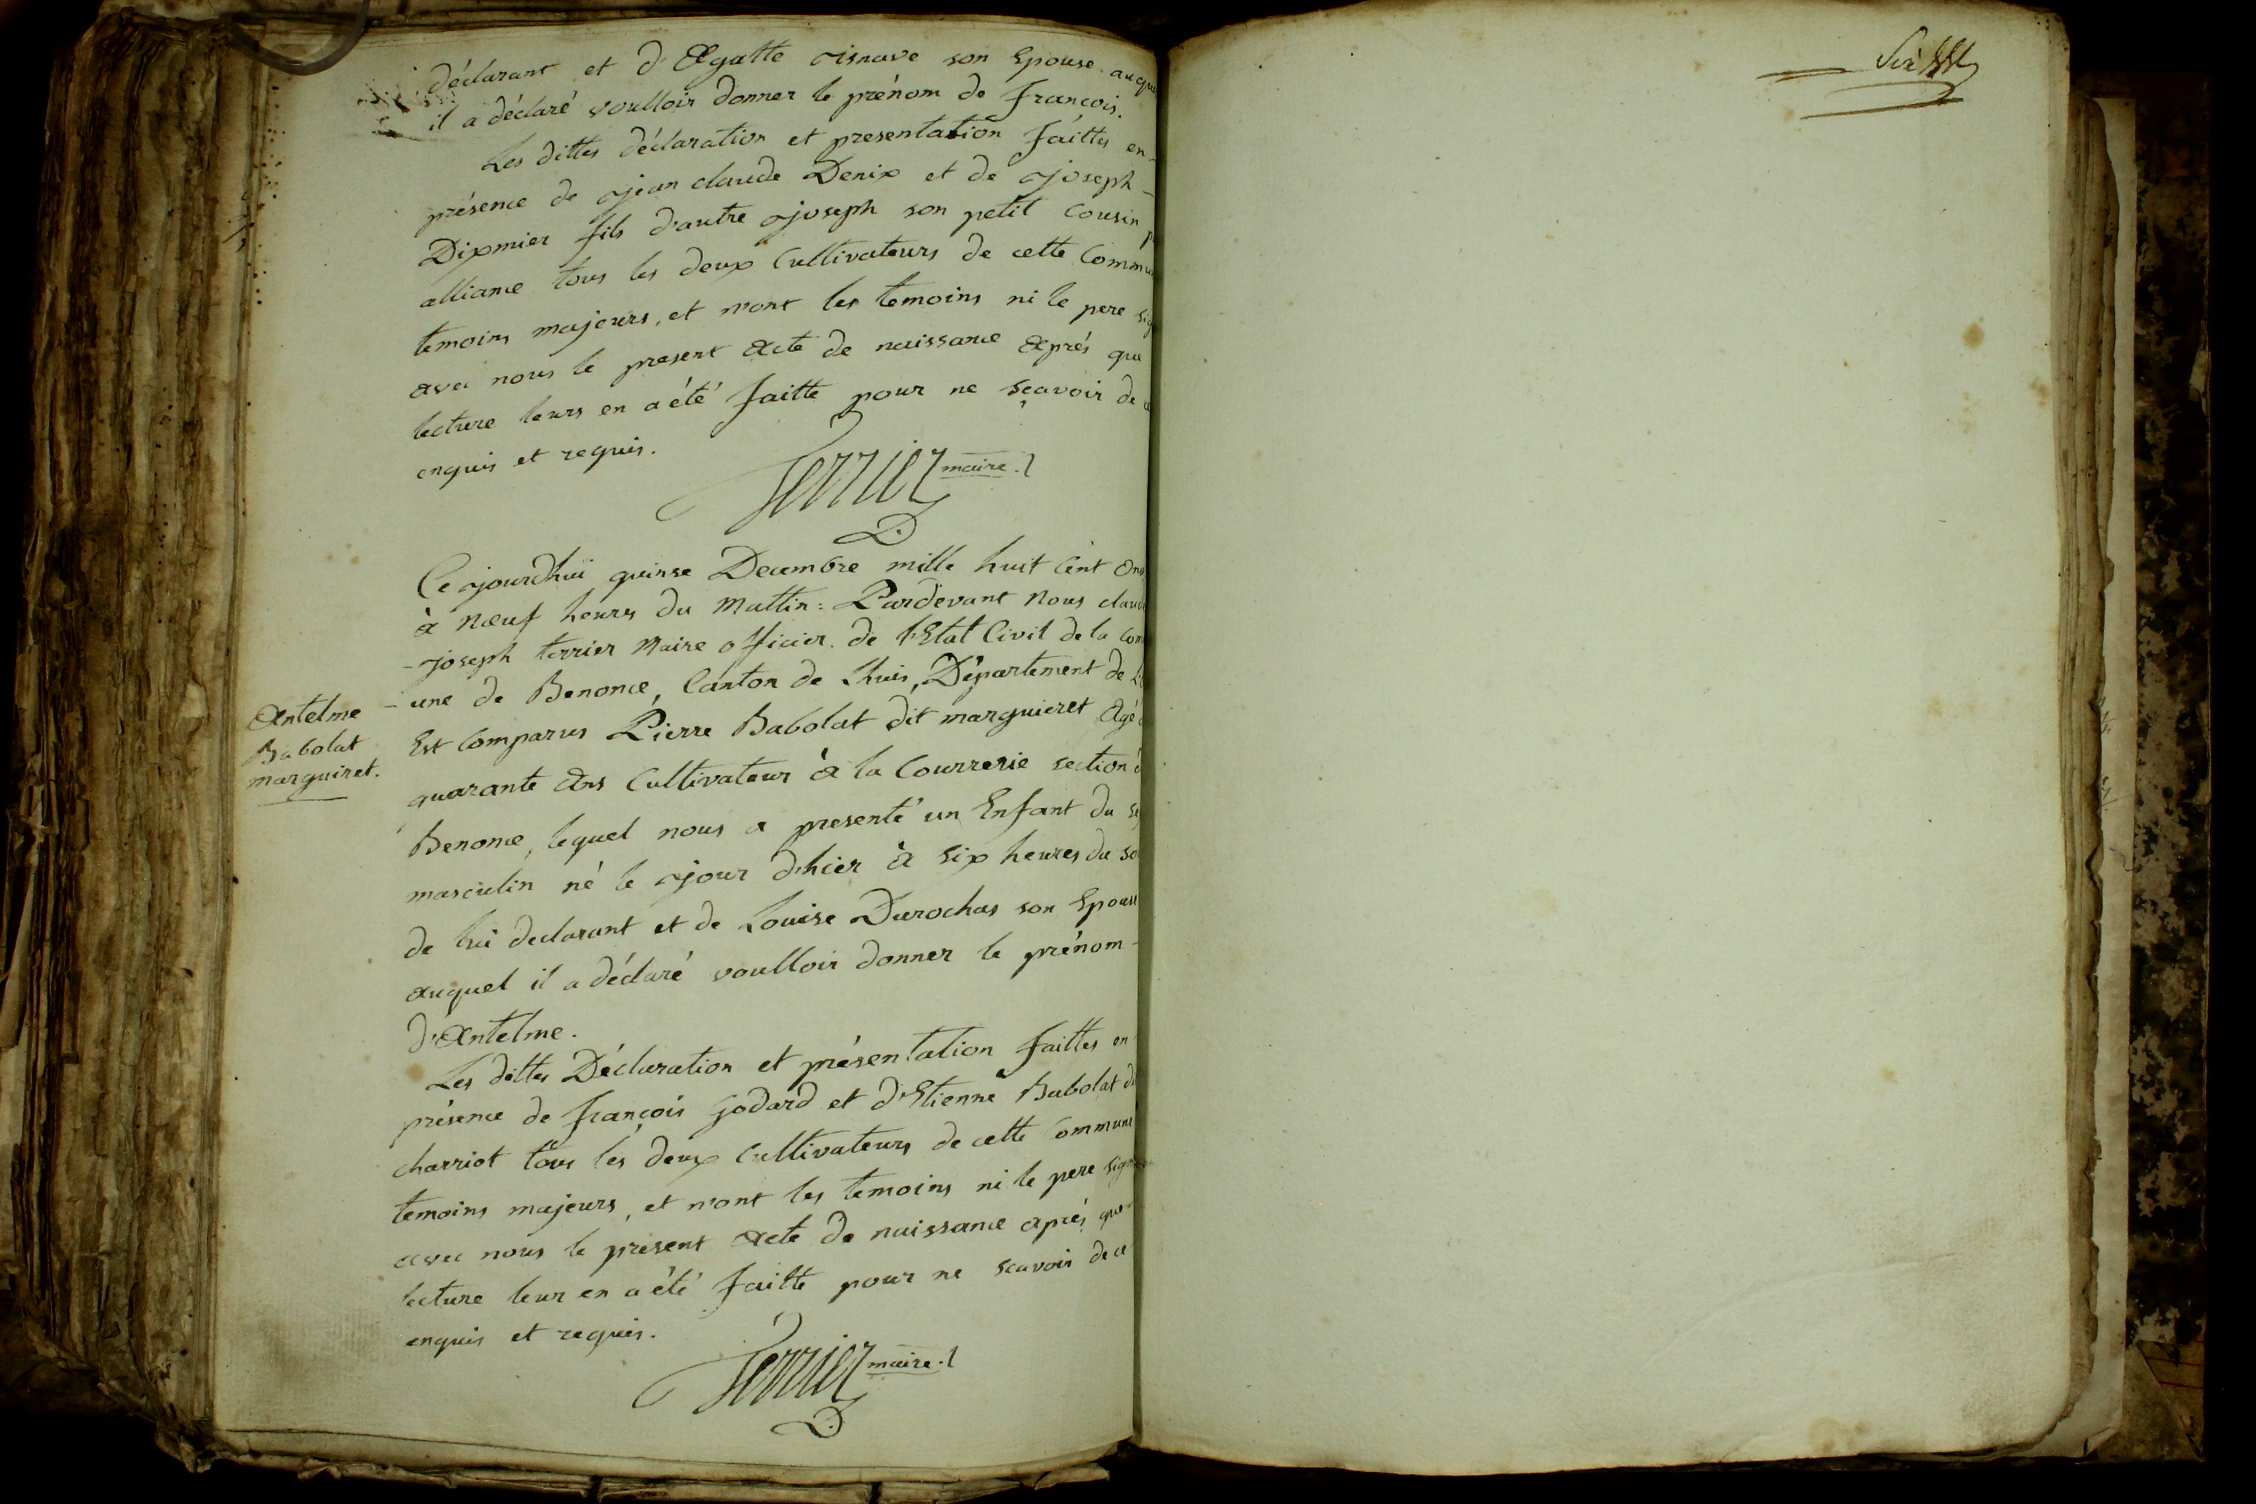 déclarant et d'Agatte Jsnave son Epouse auqu
il a déclaré voulloir donner le prénom de françois.
Les dittes déclaration et presentation faittes en-
présence de jean claude Denix et de joseph-
Dixmier fils d'autre joseph son petit Cousin p
alliance tous les deux Cultivateurs de cette Commu
temoins majeurs, et n'ont les temoins ni le pere sig
avec nous le present Acte de naissance Aprés que
lecture leurs en a été faitte pour ne sçavoir de c
enquis et requis.
Terrier maire.
Ce jourdhui quinse Decembre mille huit Cent On
à Nœuf heures du Mattin: Pardevant Nous claud
-joseph terrier Maire officier de l'Etat Civil de la Com
-une de Benonce, Canton de Lhuis, Département de L'
Antelme
Babolat
marguiret.
Est Comparus Pierre Babolat dit marguieret Agé d
quarante Ans Cultivateur à la Courrerie section d
Benonce, lequel nous a presenté un Enfant du se
masculin né le jour d'hier à six heures du so
de lui declarant et de Louise Durochas son Epouse
Auquel il a déclaré voulloir donner le prénom-
d'Antelme.
Les dittes Déclaration et présentation faittes en
présence de françois Godard et d'Etienne Babolat di
charriot tous les deux Cultivateurs de cette Commune
temoins majeurs, et n'ont les temoins ni le pere signé
avec nous le present Acte de naissance aprés que
lecture leur en a été faitte pour ne scavoir de ce
enquis et requis.
Terrier maire.